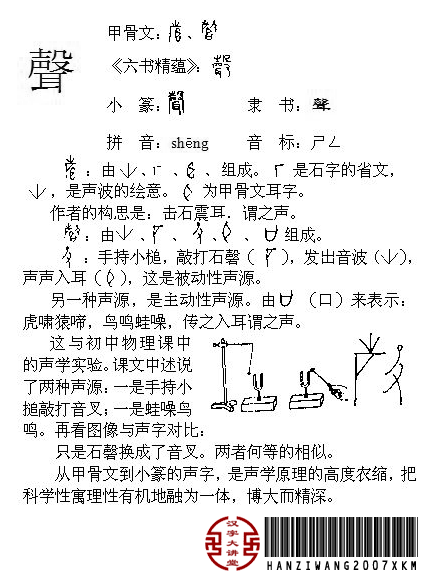 聲
甲骨文：、
《六书精蕴》：
小 篆： 隶 书：聲
拼 音：shēng 音 标：ㄕㄥ
：由、、、组成。是石字的省文，
，是声波的绘意。为甲骨文耳字。
作者的构思是：击石震耳．谓之声。
：由、、、、组成。
：手持小槌，敲打石磬（），发出音波（），
声声入耳（），这是被动性声源。
另一种声源，是主动性声源。由（口）来表示：
虎啸猿啼，鸟鸣蛙噪，传之入耳谓之声。
这与初中物理课中
的声学实验。课文中述说
了两种声源：一是手持小
搥敲打音叉；一是蛙噪鸟
鸣。再看图像与声字对比：
只是石磬换成了音叉。两者何等的相似。
从甲骨文到小篆的声字，是声学原理的高度浓缩，把
科学性寓理性有机地融为一体，博大而精深。
汉字大讲堂
HANZIWANG2007XKM